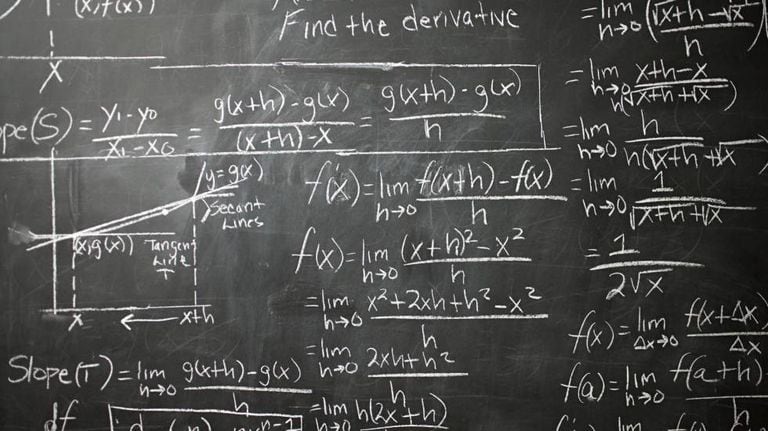 (x, f(x))
x
Find the derivative
ope(S) = (y₁-y₀)/(x₁-x₀) = (g(x+h)-g(x))/((x+h)-x) = (g(x+h)-g(x))/h
y=g(x)
Secant
Lines
(x,g(x))
Tangent
Line
T
x ← x+h
Slope(T) = lim h→0 (g(x+h)-g(x))/h
df
f(x) = lim h→0 (f(x+h)-f(x))/h
f(x) = lim h→0 ((x+h)²-x²)/h
= lim h→0 (x²+2xh+h²-x²)/h
= lim h→0 (2xh+h²)/h
= lim h→0 h(2x+h)
= lim h→0 (√x+h-√x)/h
= lim h→0 (x+h-x)/(h(√x+h+√x))
= lim h→0 h/(h(√x+h+√x))
= lim h→0 1/(√x+h+√x)
= 1/(2√x)
f(x) = lim Δx→0 f(x+Δx)/Δx
f(a) = lim h→0 f(a+h)